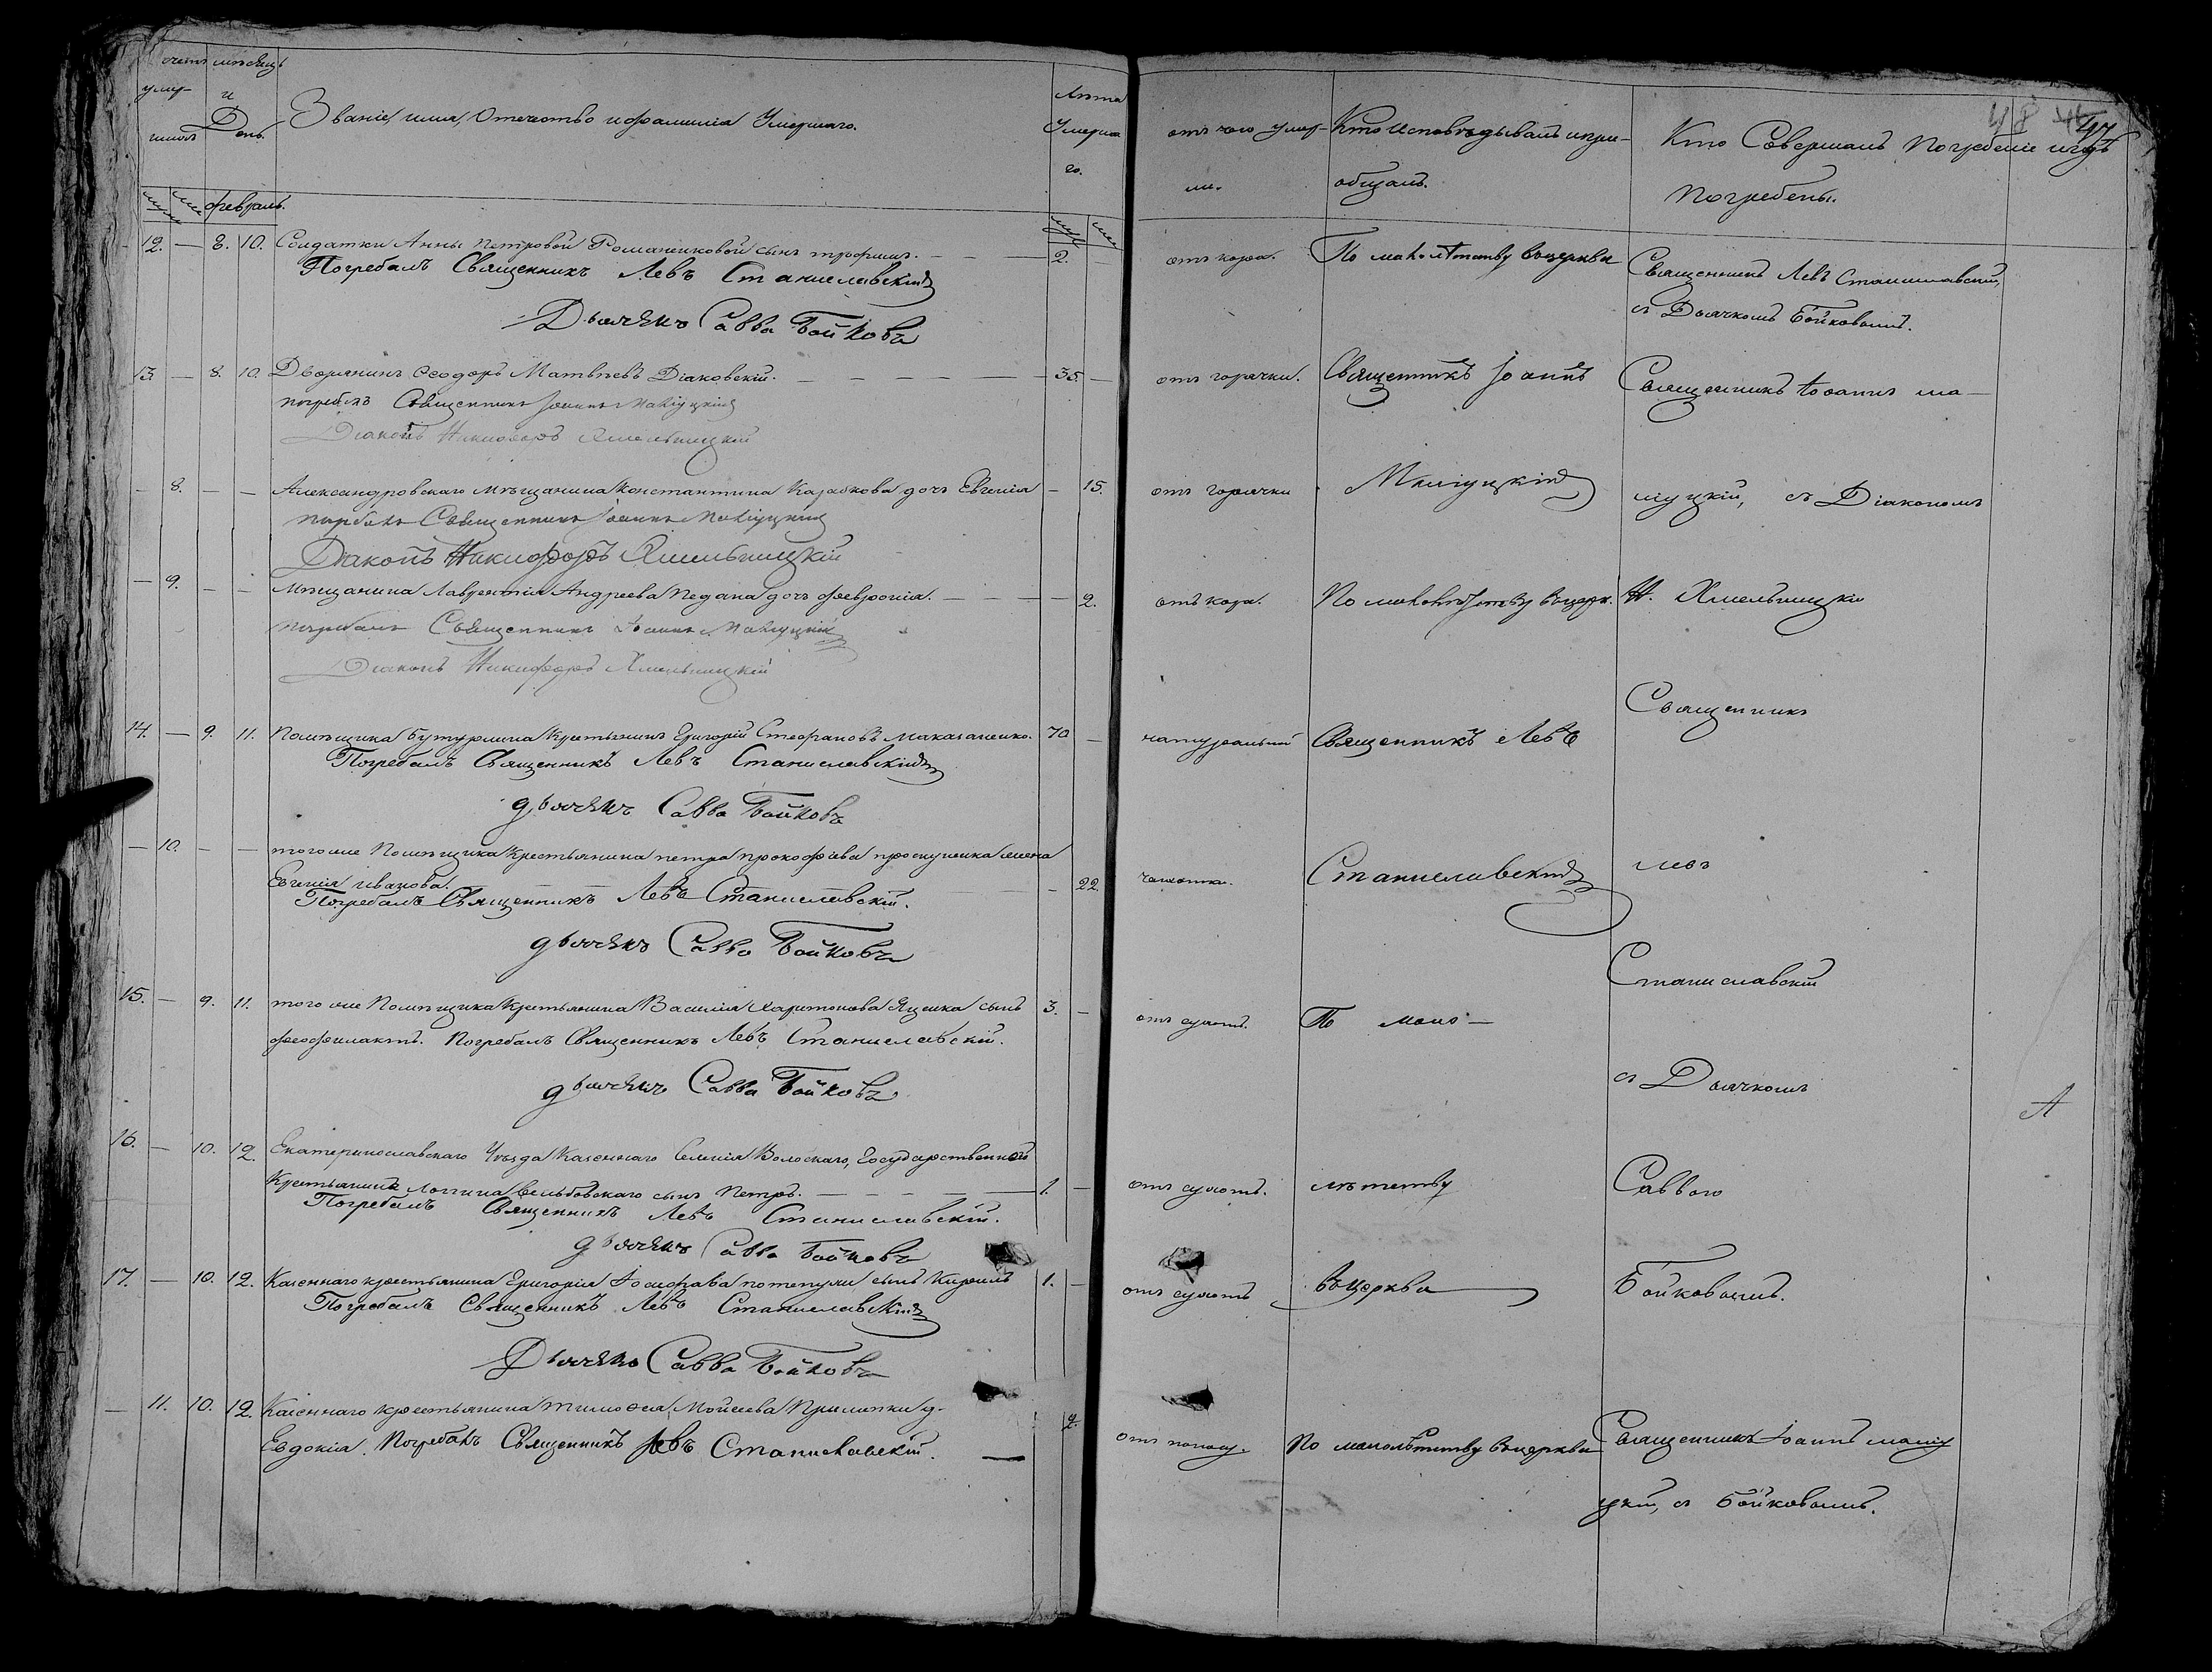 счетъ умер-шихъ
мѣсяцъ и День.
Званіе, имя, Отечество и фамилія Умершаго.
Лѣта Умерша го.
отъ чего умер-ли.
Кто Исповѣдывалъ и прі-общалъ.
Кто Совершалъ Погребеніе и гдѣ Погребены.
48 47
февраль.
12. — 8. 10. Солдатки Анны Петровой Романенковой сынъ трофимъ. — 2. — отъ кора. По малолѣтству въ церкви Священникъ Левъ Станиславскій,
Погребалъ Священникъ Левъ Станиславскій
съ Дьячкомъ Бойковымъ.
Дьячекъ Савва Бойковъ
13. — 8. 10. Дворянинъ Феодоръ Матвѣевъ Діаковскій. — 35. — отъ горячки. Священникъ Іоаннъ Священникъ Іоаннъ ма-
погребалъ Священникъ Іоаннъ Малуцкій
Діаконъ Никифоръ Хмельницкій
— 8. — — Александровскаго мѣщанина Константина Карабкова дочь Евгенія — 15. отъ горячки Малуцкій луцкій, съ Діакономъ
погребалъ Священникъ Іоаннъ Малуцкій
Діаконъ Никифоръ Хмельницкій
— 9. — — Мѣщанина Лаврентія Андреева Педана дочь феврონія. — 2. отъ кора. По малолѣтству въ церк. Н. Хмельницкій
погребалъ Священникъ Іоаннъ Малуцкій
Діаконъ Никифоръ Хмельницкій
14. — 9. 11. Помѣщика Бутурлина Крестьянинъ Григорій Стефановъ Макаганенко. 70 — натуральной Священникъ Левъ Священникъ
Погребалъ Священникъ Левъ Станиславскій
дьячекъ Савва Бойковъ
— 10. — — тогоже Помѣщика Крестьянина петра прокофіева проскуренка жена
Евгенія Иванова. — 22. чахотки. Станиславскій Левъ
Погребалъ Священникъ Левъ Станиславскій.
дьячекъ Савва Бойковъ
Станиславскій
15. — 9. 11. того же Помѣщика Крестьянина Василія Харитонова Яценка сынъ 3. — отъ сухотъ. По мало —
феофилактъ. Погребалъ Священникъ Левъ Станиславскій.
дьячекъ Савва Бойковъ
съ Дьячкомъ
16. — 10. 12. Екатеринославскаго Уѣзда Казеннаго Селенія Волоскаго, Государственнаго
Крестьянина Логгина сынъ Петръ. — 1. — отъ сухотъ. лѣтству Саввою
Погребалъ Священникъ Левъ Станиславскій.
дьячекъ Савва Бойковъ
17. — 10. 12. Казеннаго крестьянина Григорія Іосифова потапули сынъ Кирилъ 1. — отъ сухотъ въ церкви Бойковымъ.
Погребалъ Священникъ Левъ Станиславскій
Дьячекъ Савва Бойковъ
— 11. 10. 12. Казеннаго крестьянина Тимофея Мойсеева Прилипки д.
Евдокія. Погребалъ Священникъ Левъ Станиславскій. — 2. отъ поносу. По малолѣтству въ церкви Священникъ Іоаннъ малу
цкій, съ Бойковымъ.